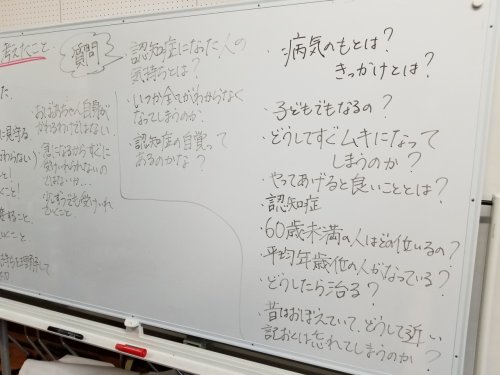 考えたこと
た
に見守る
わらない)
こと!
くこと!
こと、
いくこと
持ちを理解して
おばあちゃん自身が
かわるわけではない
急になるからすぐに
受けいれられないの
ではないか…
少しずつでも受けいれ
ていくこと
質問
認知症になった人の
気持ちとは?
・いつか全てがわからなく
なってしまうのか
・認知症の自覚って
あるのかな?
・病気のもとは?
きっかけとは?
・子どもでもなるの?
・どうしてすぐムキになって
しまうのか?
・やってあげると良いこととは?
・認知症
・60歳未満の人はどの位いるの?
・平均年歳位の人がなっている?
・どうしたら治る?
・昔はおぼえていて、どうして近い
記おくは忘れてしまうのか?